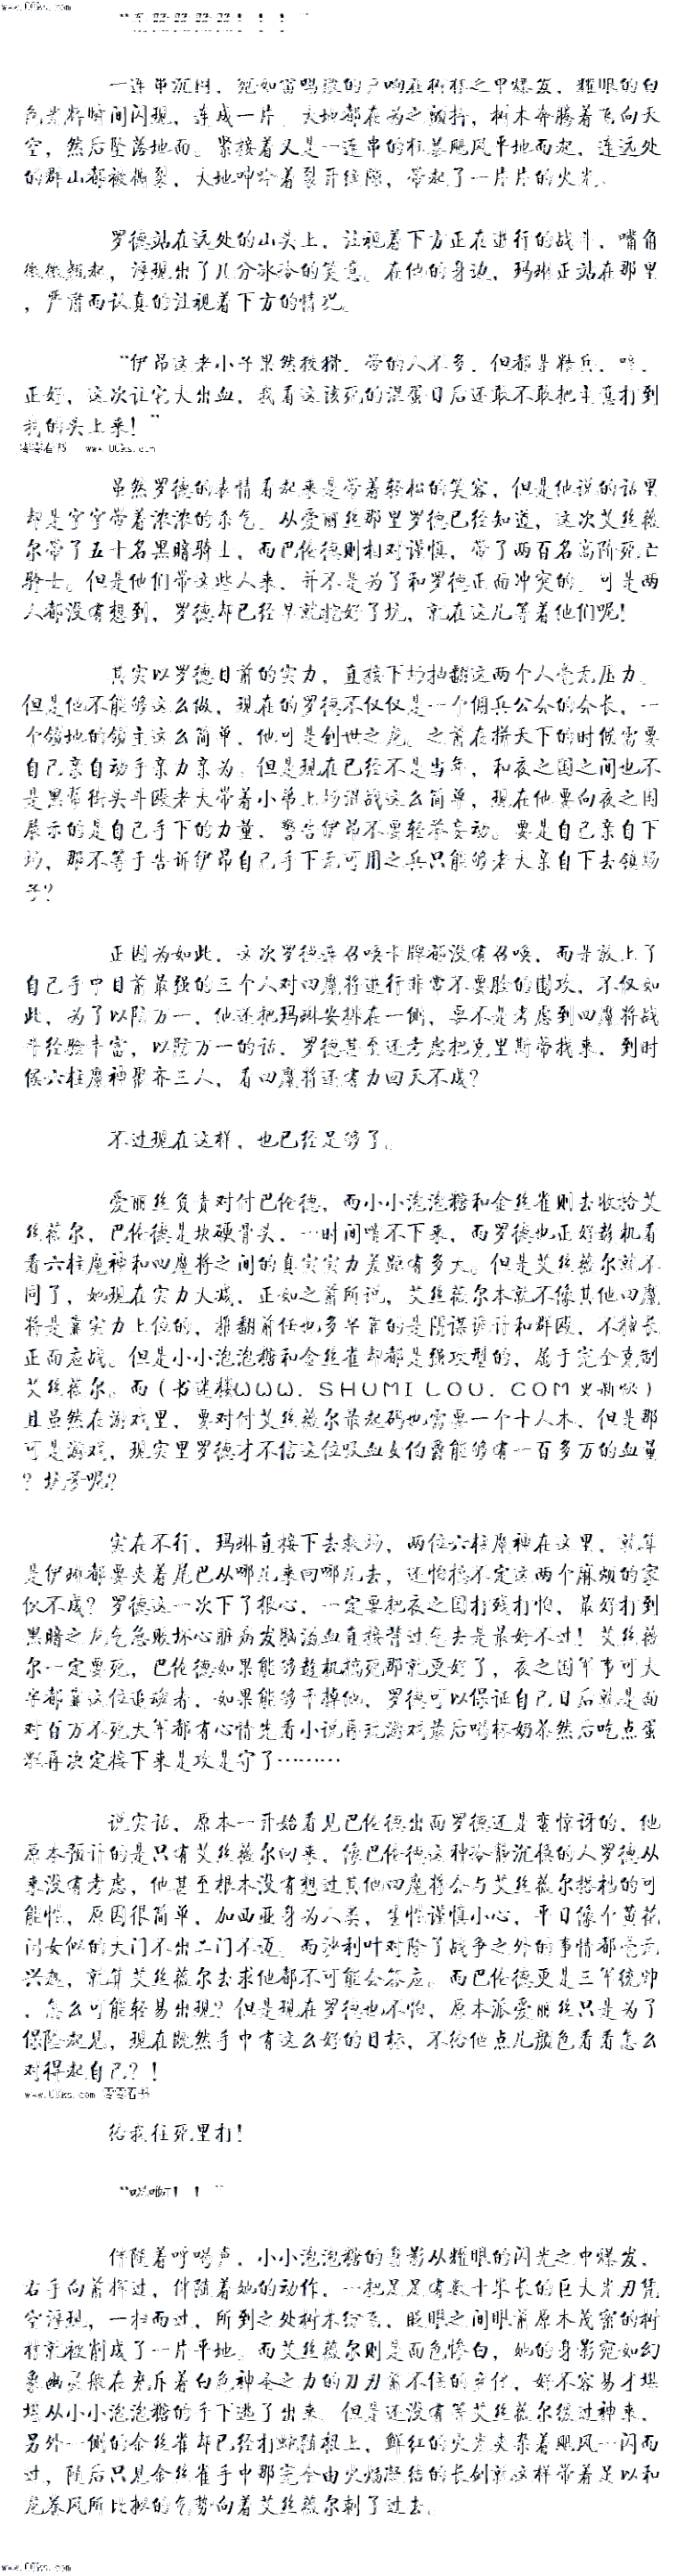 www.00ks.com
一连串沉闷,宛如雷鸣般的声响在树林之中爆发,耀眼的白
色光辉瞬间闪现,连成一片,大地都在为之颤抖,树木奔腾着飞向天
空,然后坠落地面。紧接着又是一连串的狂暴飓风平地而起,连远处
的群山都被撕裂,大地呻吟着裂开缝隙,带起了一片片的火光。
罗德站在远处的山头上,注视着下方正在进行的战斗,嘴角
微微翘起,浮现出了几分冰冷的笑意。在他的身边,玛琳正站在那里
,严肃而认真的注视着下方的情况。
“伊昂这老小子果然狡猾,带的人不多,但都是精兵,哼,
正好,这次让它大出血,我看这该死的混蛋日后还敢不敢把主意打到
我的头上来!”
零零看书 www.00ks.com
虽然罗德的表情看起来是带着轻松的笑容,但是他说的话里
却是字字带着浓浓的杀气。从爱丽丝那里罗德已经知道,这次艾丝薇
尔带了五十名黑暗骑士,而巴伦德则相对谨慎,带了两百名高阶死亡
骑士。但是他们带这些人来,并不是为了和罗德正面冲突的。可是两
人都没有想到,罗德却已经早就挖好了坑,就在这儿等着他们呢!
其实以罗德目前的实力,直接下场抽翻这两个人毫无压力。
但是他不能够这么做,现在的罗德不仅仅是一个佣兵公会的会长,一
个领地的领主这么简单,他可是创世之龙。之前在拼天下的时候需要
自己亲自动手亲力亲为,但是现在已经不是当年,和夜之国之间也不
是黑帮街头斗殴老大带着小弟上场混战这么简单,现在他要向夜之国
展示的是自己手下的力量,警告伊昂不要轻举妄动。要是自己亲自下
场,那不等于告诉伊昂自己手下无可用之兵只能够老大亲自下去镇场
子?
正因为如此,这次罗德连召唤卡牌都没有召唤,而是放上了
自己手中目前最强的三个人对四魔将进行非常不要脸的围攻,不仅如
此,为了以防万一,他还把玛琳安排在一侧,要不是考虑到四魔将战
斗经验丰富,以防万一的话,罗德甚至还考虑把克里斯带找来,到时
候六柱魔神聚齐三人,看四魔将还有力回天不成?
不过现在这样,也已经足够了。
爱丽丝负责对付巴伦德,而小小泡泡糖和金丝雀则去收拾艾
丝薇尔,巴伦德是块硬骨头,一时间啃不下来,而罗德也正好趁机看
看六柱魔神和四魔将之间的真实实力差距有多大。但是艾丝薇尔就不
同了,她现在实力大减,正如之前所说,艾丝薇尔本就不像其他四魔
将是靠实力上位的,推翻前任也多半靠的是阴谋诡计和群殴,不擅长
正面应战。但是小小泡泡糖和金丝雀却都是强攻型的,属于完全克制
艾丝薇尔。而(书谜楼WWW.SHUMILOU.COM火新快)
且虽然在游戏里,要对付艾丝薇尔最起码也需要一个十人本,但是那
可是游戏,现实里罗德才不信这位吸血女伯爵能够有一百多万的血量
?坑爹呢?
实在不行,玛琳直接下去救场,两位六柱魔神在这里,就算
是伊琳都要夹着尾巴从哪儿来回哪儿去,还怕搞不定这两个麻烦的家
伙不成?罗德这一次下了狠心,一定要把夜之国打残打怕,最好打到
黑暗之龙气急败坏心脏病发脑溢血直接背过气去是最好不过!艾丝薇
尔一定要死,巴伦德如果能够趁机搞死那就更好了,夜之国军事可大
半都靠这位追魂者,如果能够干掉他,罗德可以保证自己日后就是面
对百万不死大军都有心情先看小说再玩游戏最后喝杯奶茶然后吃点蛋
糕再决定接下来是攻是守了………
说实话,原本一开始看见巴伦德出面罗德还是蛮惊讶的,他
原本预计的是只有艾丝薇尔回来,像巴伦德这种冷静沉稳的人罗德从
来没有考虑,他甚至根本没有想过其他四魔将会与艾丝薇尔搭档的可
能性,原因很简单,加西亚身为人类,生性谨慎小心,平日像个黄花
闺女似的大门不出二门不迈。而沙利叶对除了战争之外的事情都毫无
兴趣,就算艾丝薇尔去求他都不可能会答应。而巴伦德更是三军统帅
,怎么可能轻易出现?但是现在罗德也不怕,原本派爱丽丝只是为了
保险起见,现在既然手中有这么好的目标,不给他点儿颜色看看怎么
对得起自己?!
www.00ks.com 零零看书
给我往死里打!
伴随着呼喝声,小小泡泡糖的身影从耀眼的闪光之中爆发,
右手向前挥过,伴随着她的动作,一把足足有数十米长的巨大光刃凭
空浮现,一扫而过,所到之处树木纷飞,眨眼之间眼前原本茂密的树
林就被削成了一片平地。而艾丝薇尔则是面色惨白,她的身影宛如幻
象幽灵般在充斥着白色神圣之力的刀刃前不住的变化,好不容易才堪
堪从小小泡泡糖的手下逃了出来。但是还没有等艾丝薇尔缓过神来,
另外一侧的金丝雀却已经打蛇随棍上,鲜红的火光夹杂着飓风一闪而
过,随后只见金丝雀手中那完全由火焰凝结的长剑就这样带着足以和
龙卷风所比拟的气势向着艾丝薇尔刺了过去。
www.00ks.com